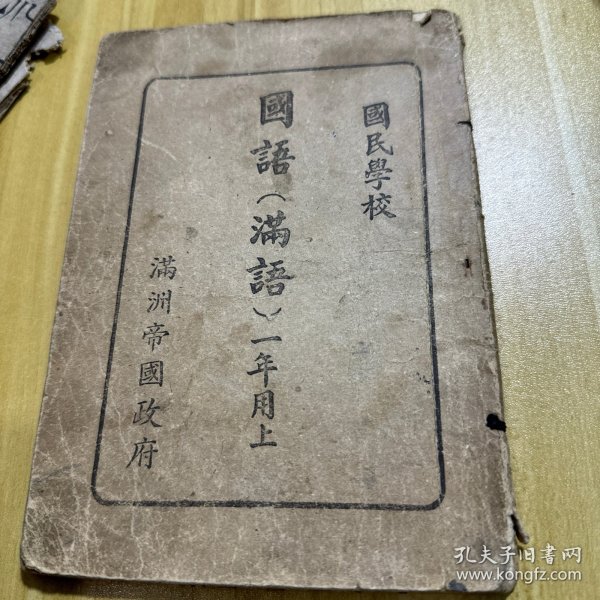 國民學校
國語（滿語）一年用上
滿洲帝國政府
孔夫子旧书网
www.kongfz.com